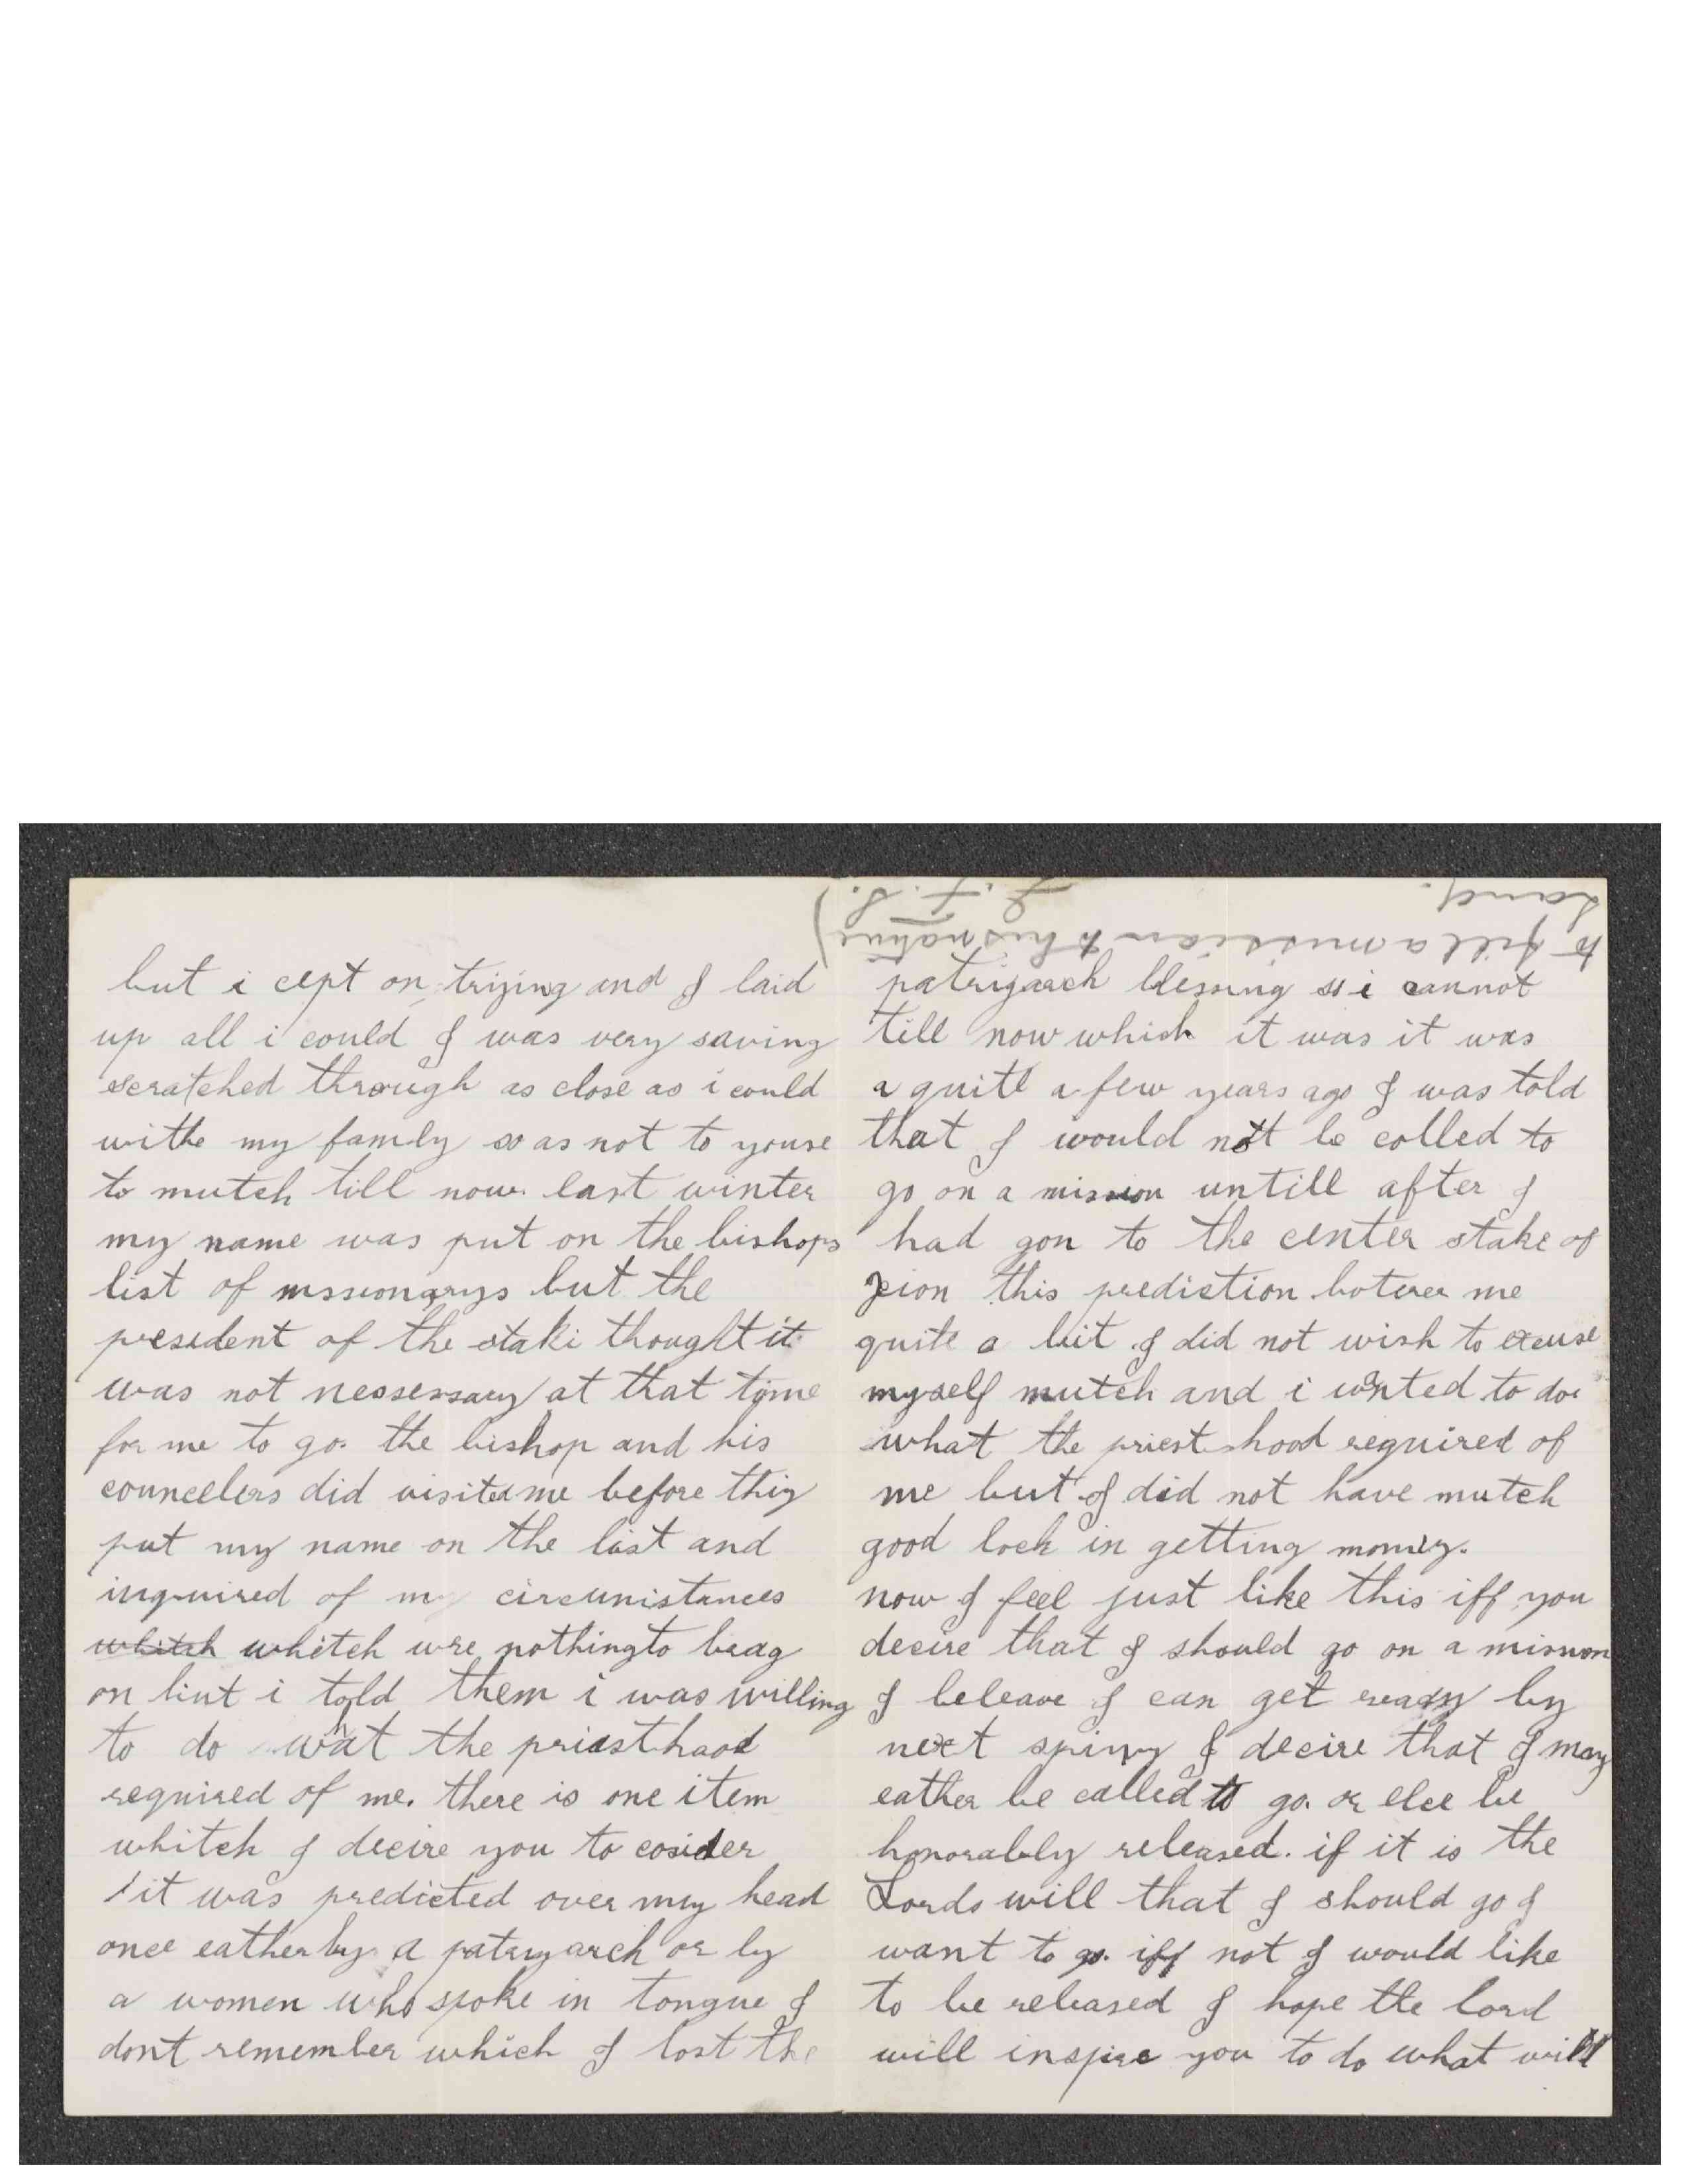 but i cept on trijing and I laid
up all i could I was very saving
scratched through as close as i could
withe my family so as not to youse
to mutch till now. last winter
my name was put on the bishops
list of mssionarys but the
president of the stake thought it
was not nessessary at that time
for me to go. the bishop and his
councelers did visited me before thiy
put my name on the list and
inquired of my circumistances
whitch whitch wre nothing to brag
on but i told them i was willing
to do wat the priesthood
required of me. there is one item
whitch I decire you to cosider
it was predicted over my head
once eather by a patryarch or by
a women who spoke in tongue I
dont remember which I lost the
to fill a mission to his native
Land.
L. F. S.)
patrigarch blessing so i cannot
till now which it was it was
a quite a few years ago I was told
that I would not be colled to
go on a mission untill after I
had gon to the center stake of
zion this prediction boterer me
quite a bit I did not wish to excuse
myself mutch and i wanted to do
what the priest hood required of
me but I did not have mutch
good lock in getting money.
now I feel just like this iff you
decire that I should go on a misson
I beleave I can get ready by
next spring I decire that I may
eather be called to go. or else be
honorably released. if it is the
Lords will that I should go I
want to go. iff not I would like
to be released I hope the lord
will inspire you to do what will